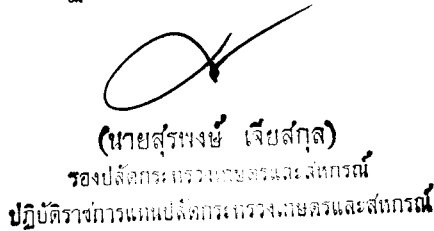 (นายสุรพงษ์ เจียสกุล)
รองปลัดกระทรวงเกษตรและสหกรณ์
ปฏิบัติราชการแทนปลัดกระทรวงเกษตรและสหกรณ์